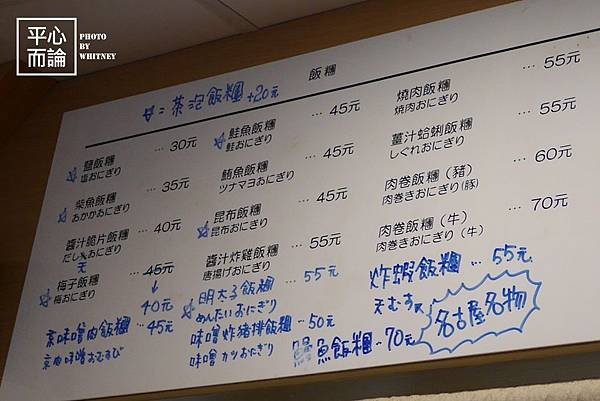 平心
而論
PHOTO
BY
WHITNEY
飯糰
☆=茶泡飯糰 +20元
☆ 鹽飯糰 … 30元
塩おにぎり
☆ 柴魚飯糰 … 35元
おかかおにぎり
醬汁脆片飯糰 … 40元
だしおにぎり
天
☆ 梅子飯糰 … 45元
梅おにぎり
40元
京味噌肉飯糰 … 45元
京肉味噌おむすび
☆ 鮭魚飯糰 … 45元
鮭おにぎり
鮪魚飯糰 … 45元
ツナマヨおにぎり
☆ 昆布飯糰 … 45元
昆布おにぎり
醬汁炸雞飯糰 … 55元
唐揚げおにぎり
☆ 明太子飯糰 … 55元
めんたいおにぎり
味噌炸豬排飯糰 … 50元
味噌カツおにぎり
鰻魚飯糰 … 70元
燒肉飯糰 … 55元
焼肉おにぎり
薑汁蛤蜊飯糰 … 55元
しぐれおにぎり
肉卷飯糰(豬) … 60元
肉巻きおにぎり(豚)
肉卷飯糰(牛) … 70元
肉巻きおにぎり(牛)
炸蝦飯糰 … 55元
天むす
名古屋名物